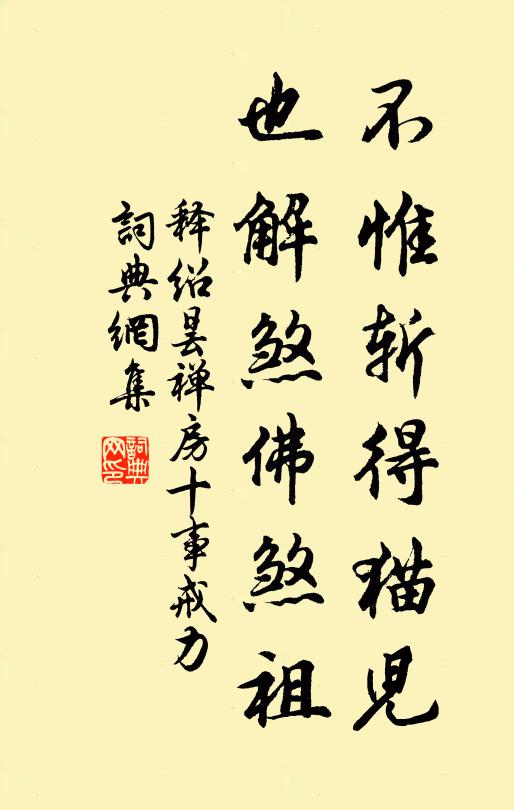 不惟斩得猫児
也解煞佛煞祖
释绍昙禅房十事戒力
詞典網集
詞典网印